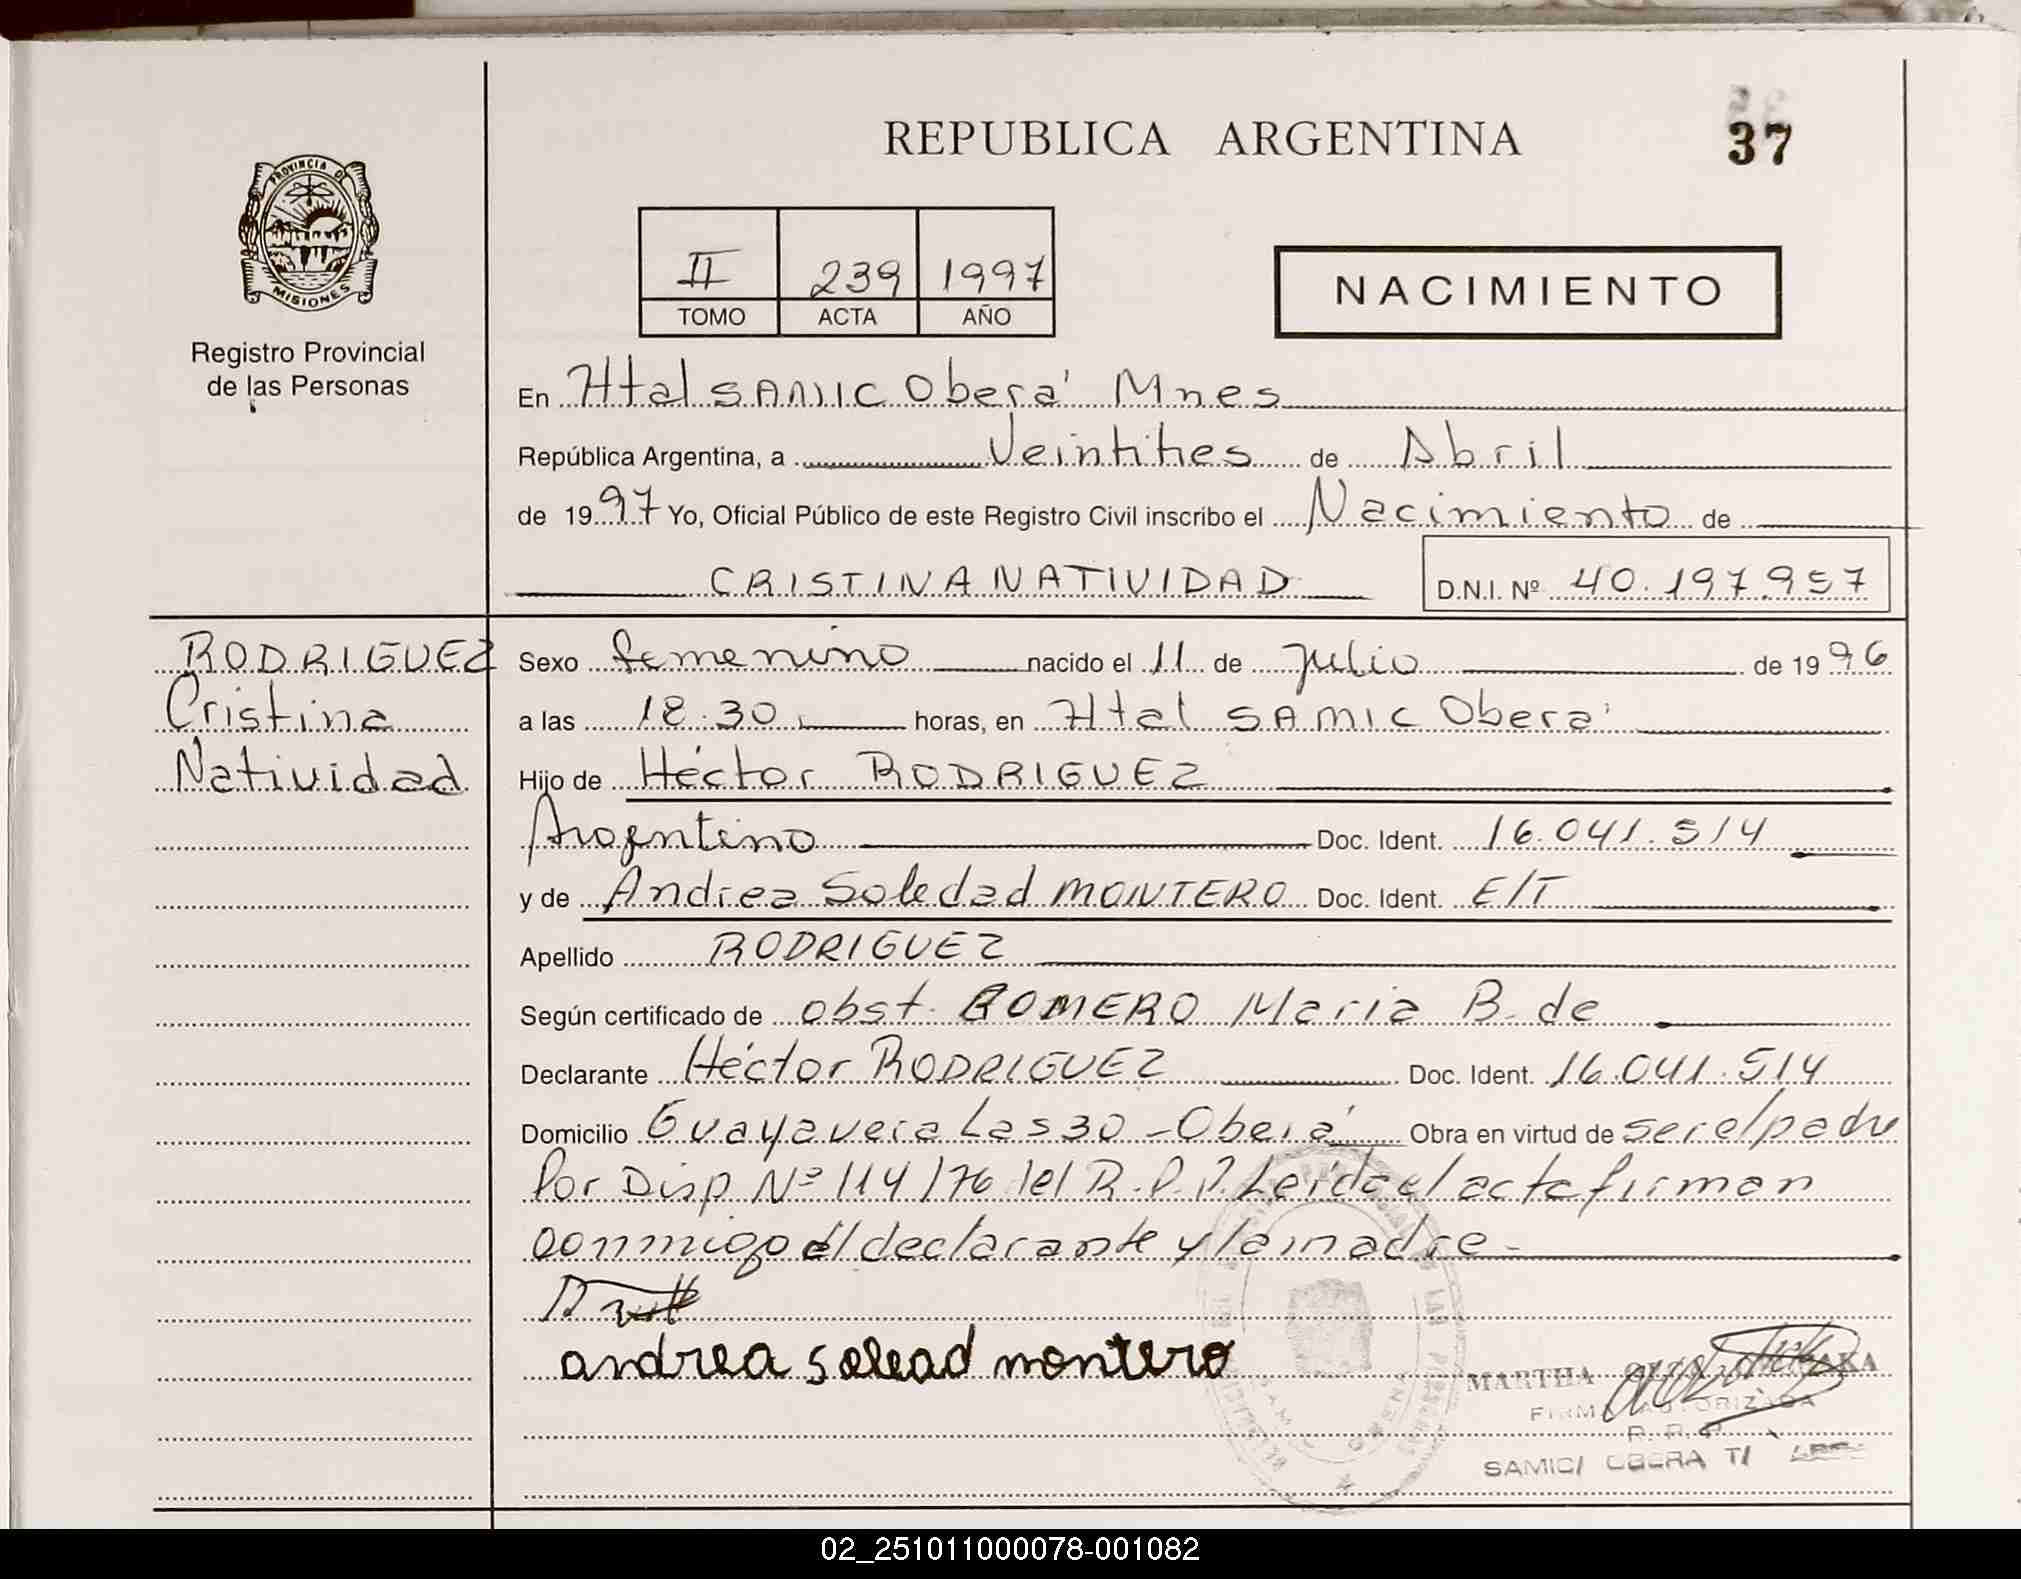 REPUBLICA ARGENTINA
37
PROVINCIA DE
MISIONES
Registro Provincial
de las Personas
II 239 1997
TOMO ACTA AÑO
NACIMIENTO
En Htal SAMIC Oberá Mnes
República Argentina, a Veintitres de Abril
de 1997 Yo, Oficial Público de este Registro Civil inscribo el Nacimiento de
CRISTINA NATIVIDAD D.N.I. Nº 40.197.957
RODRIGUEZ
Cristina
Natividad
Sexo femenino nacido el 11 de julio de 1996
a las 18.30 horas, en Htal SAMIC Oberá
Hijo de Héctor RODRIGUEZ
Argentino Doc. Ident. 16.041.514
y de Andrea Soledad MONTERO Doc. Ident. E/T
Apellido RODRIGUEZ
Según certificado de obst. ROMERO Maria B. de
Declarante Héctor RODRIGUEZ Doc. Ident. 16.041.514
Domicilio Guayavera Las 30 - Oberá Obra en virtud de ser el padre
Por Disp Nº 114/76 del R.P.P. Leida el acta firman
conmigo el declarante y la madre -
andrea solead montero
MARTHA
FIRMA AUTORIZADA
R. R. P.
SAMIC/ OBERA
02_251011000078-001082